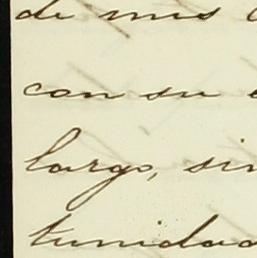 de mis
con su
largo, sin
tunidad